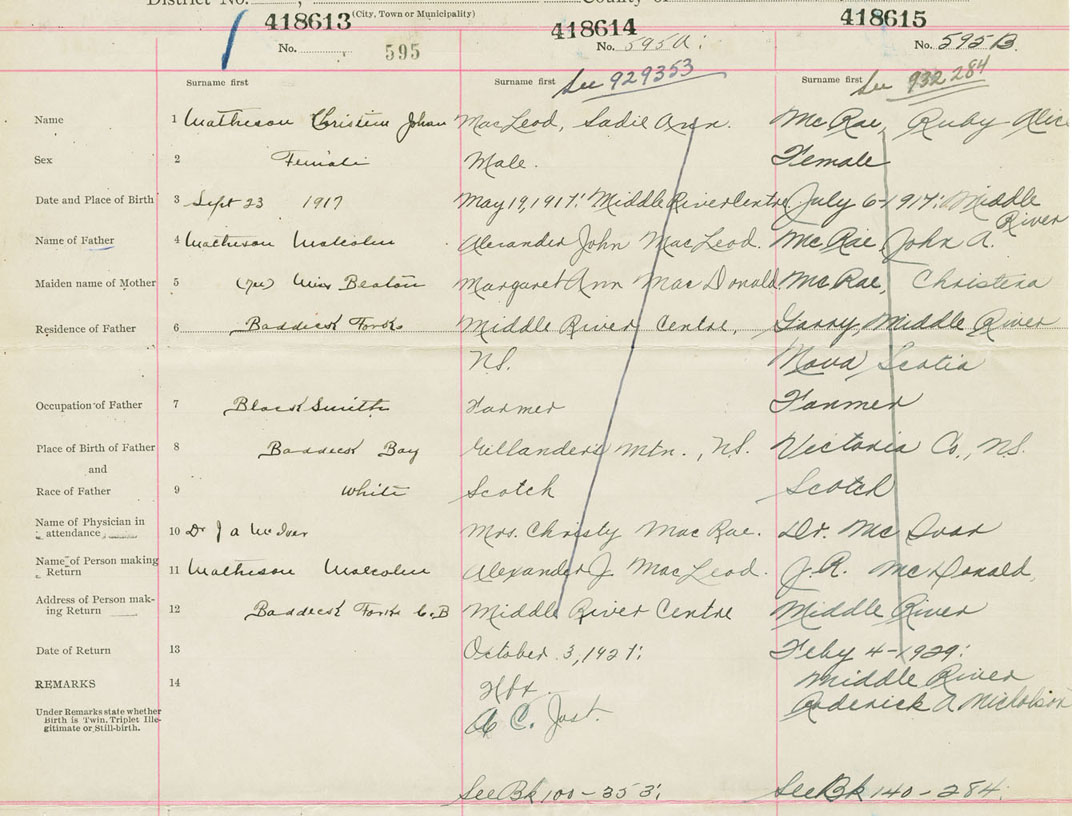 District No. , County of
(City, Town or Municipality)
418613 418614 418615
No. 595 No. 595A: No. 595B
Surname first Surname first Surname first
See 929353 See 932284
Name 1 Matheson Christina Johan MacLeod, Sadie Ann. McRae, Ruby Alice
Sex 2 Female Male. Female
Date and Place of Birth 3 Sept 23 1917 May 19, 1917: Middle River Centre. July 6-1917: Middle River
Name of Father 4 Matheson Malcolm Alexander John MacLeod. McRae, John A.
Maiden name of Mother 5 (nee) Miss Beaton Margaret Ann MacDonald McRae, Christena
Residence of Father 6 Baddeck Forks Middle River Centre, Garry, Middle River
NS. Nova Scotia
Occupation of Father 7 Black Smith Farmer Farmer
Place of Birth of Father 8 Baddeck Bay Gillander's Mtn., NS. Victoria Co., NS.
and
Race of Father 9 White Scotch Scotch
Name of Physician in
attendance 10 Dr J a McIver Mrs. Christy MacRae. Dr. McIvar
Name of Person making
Return 11 Matheson Malcolm Alexander J. MacLeod. J.R. McDonald,
Address of Person mak-
ing Return 12 Baddeck Forks C.B Middle River Centre Middle River
Date of Return 13 October 3, 1927: Feby 4-1929:
REMARKS 14 Hfx. Middle River
A C. Jost. Roderick A Nicholson
Under Remarks state whether
Birth is Twin, Triplet Ille-
gitimate or Still-birth.
See Bk 100-353: See Bk 140-284: